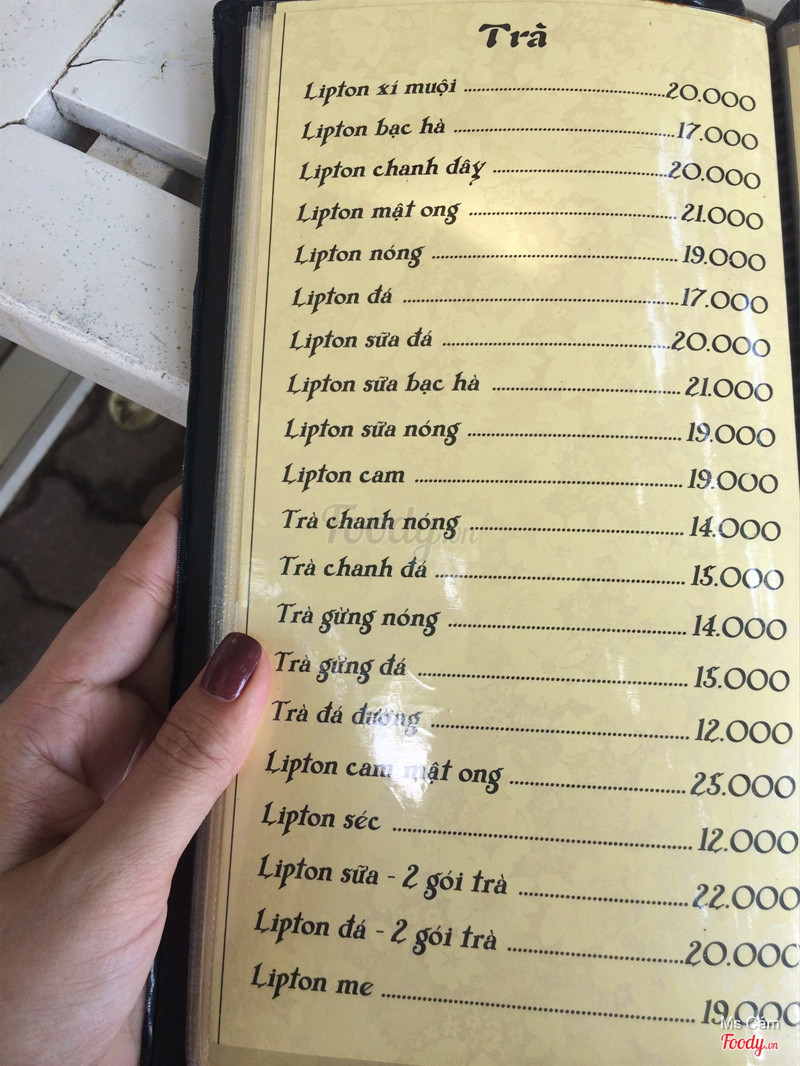 Trà
Lipton xí muội 20.000
Lipton bạc hà 17.000
Lipton chanh dây 20.000
Lipton mật ong 21.000
Lipton nóng 19.000
Lipton đá 17.000
Lipton sữa đá 20.000
Lipton sữa bạc hà 21.000
Lipton sữa nóng 19.000
Lipton cam 19.000
Trà chanh nóng 14.000
Trà chanh đá 15.000
Trà gừng nóng 14.000
Trà gừng đá 15.000
Trà đá đường 12.000
Lipton cam mật ong 25.000
Lipton séc 12.000
Lipton sữa - 2 gói trà 22.000
Lipton đá - 2 gói trà 20.000
Lipton me 19.000
Foody.vn
Ms Cám
Foody.vn